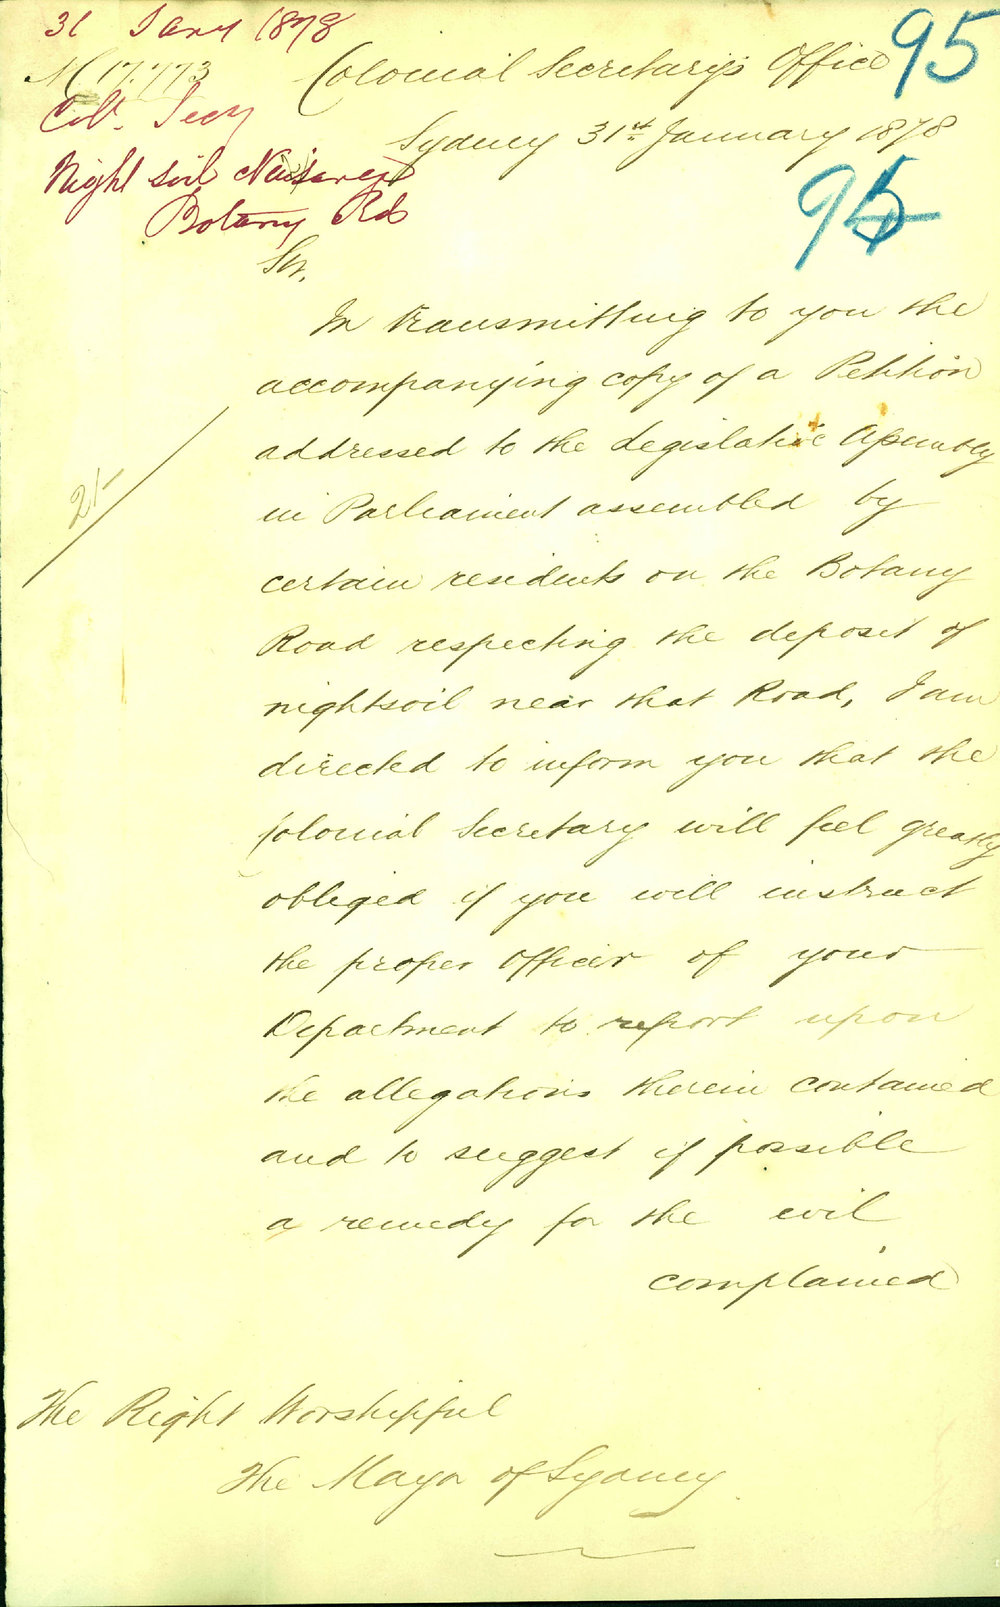 31 Jany 1878
95
M 17.773
Colonial Secretary's Office
Col. Secy
Sydney 31st January 1878
Night soil Nuisances
Botany Rd
95
Sir,
In transmitting to you the
accompanying copy of a Petition
addressed to the Legislative Assembly
in Parliament assembled by
certain residents on the Botany
Road respecting the deposit of
nightsoil near that Road, I am
directed to inform you that the
Colonial Secretary will feel greatly
obliged if you will instruct
the proper Officer of your
Department to report upon
the allegations therein contained
and to suggest if possible
a remedy for the evil
complained
21-
The Right Worshipful
The Mayor of Sydney